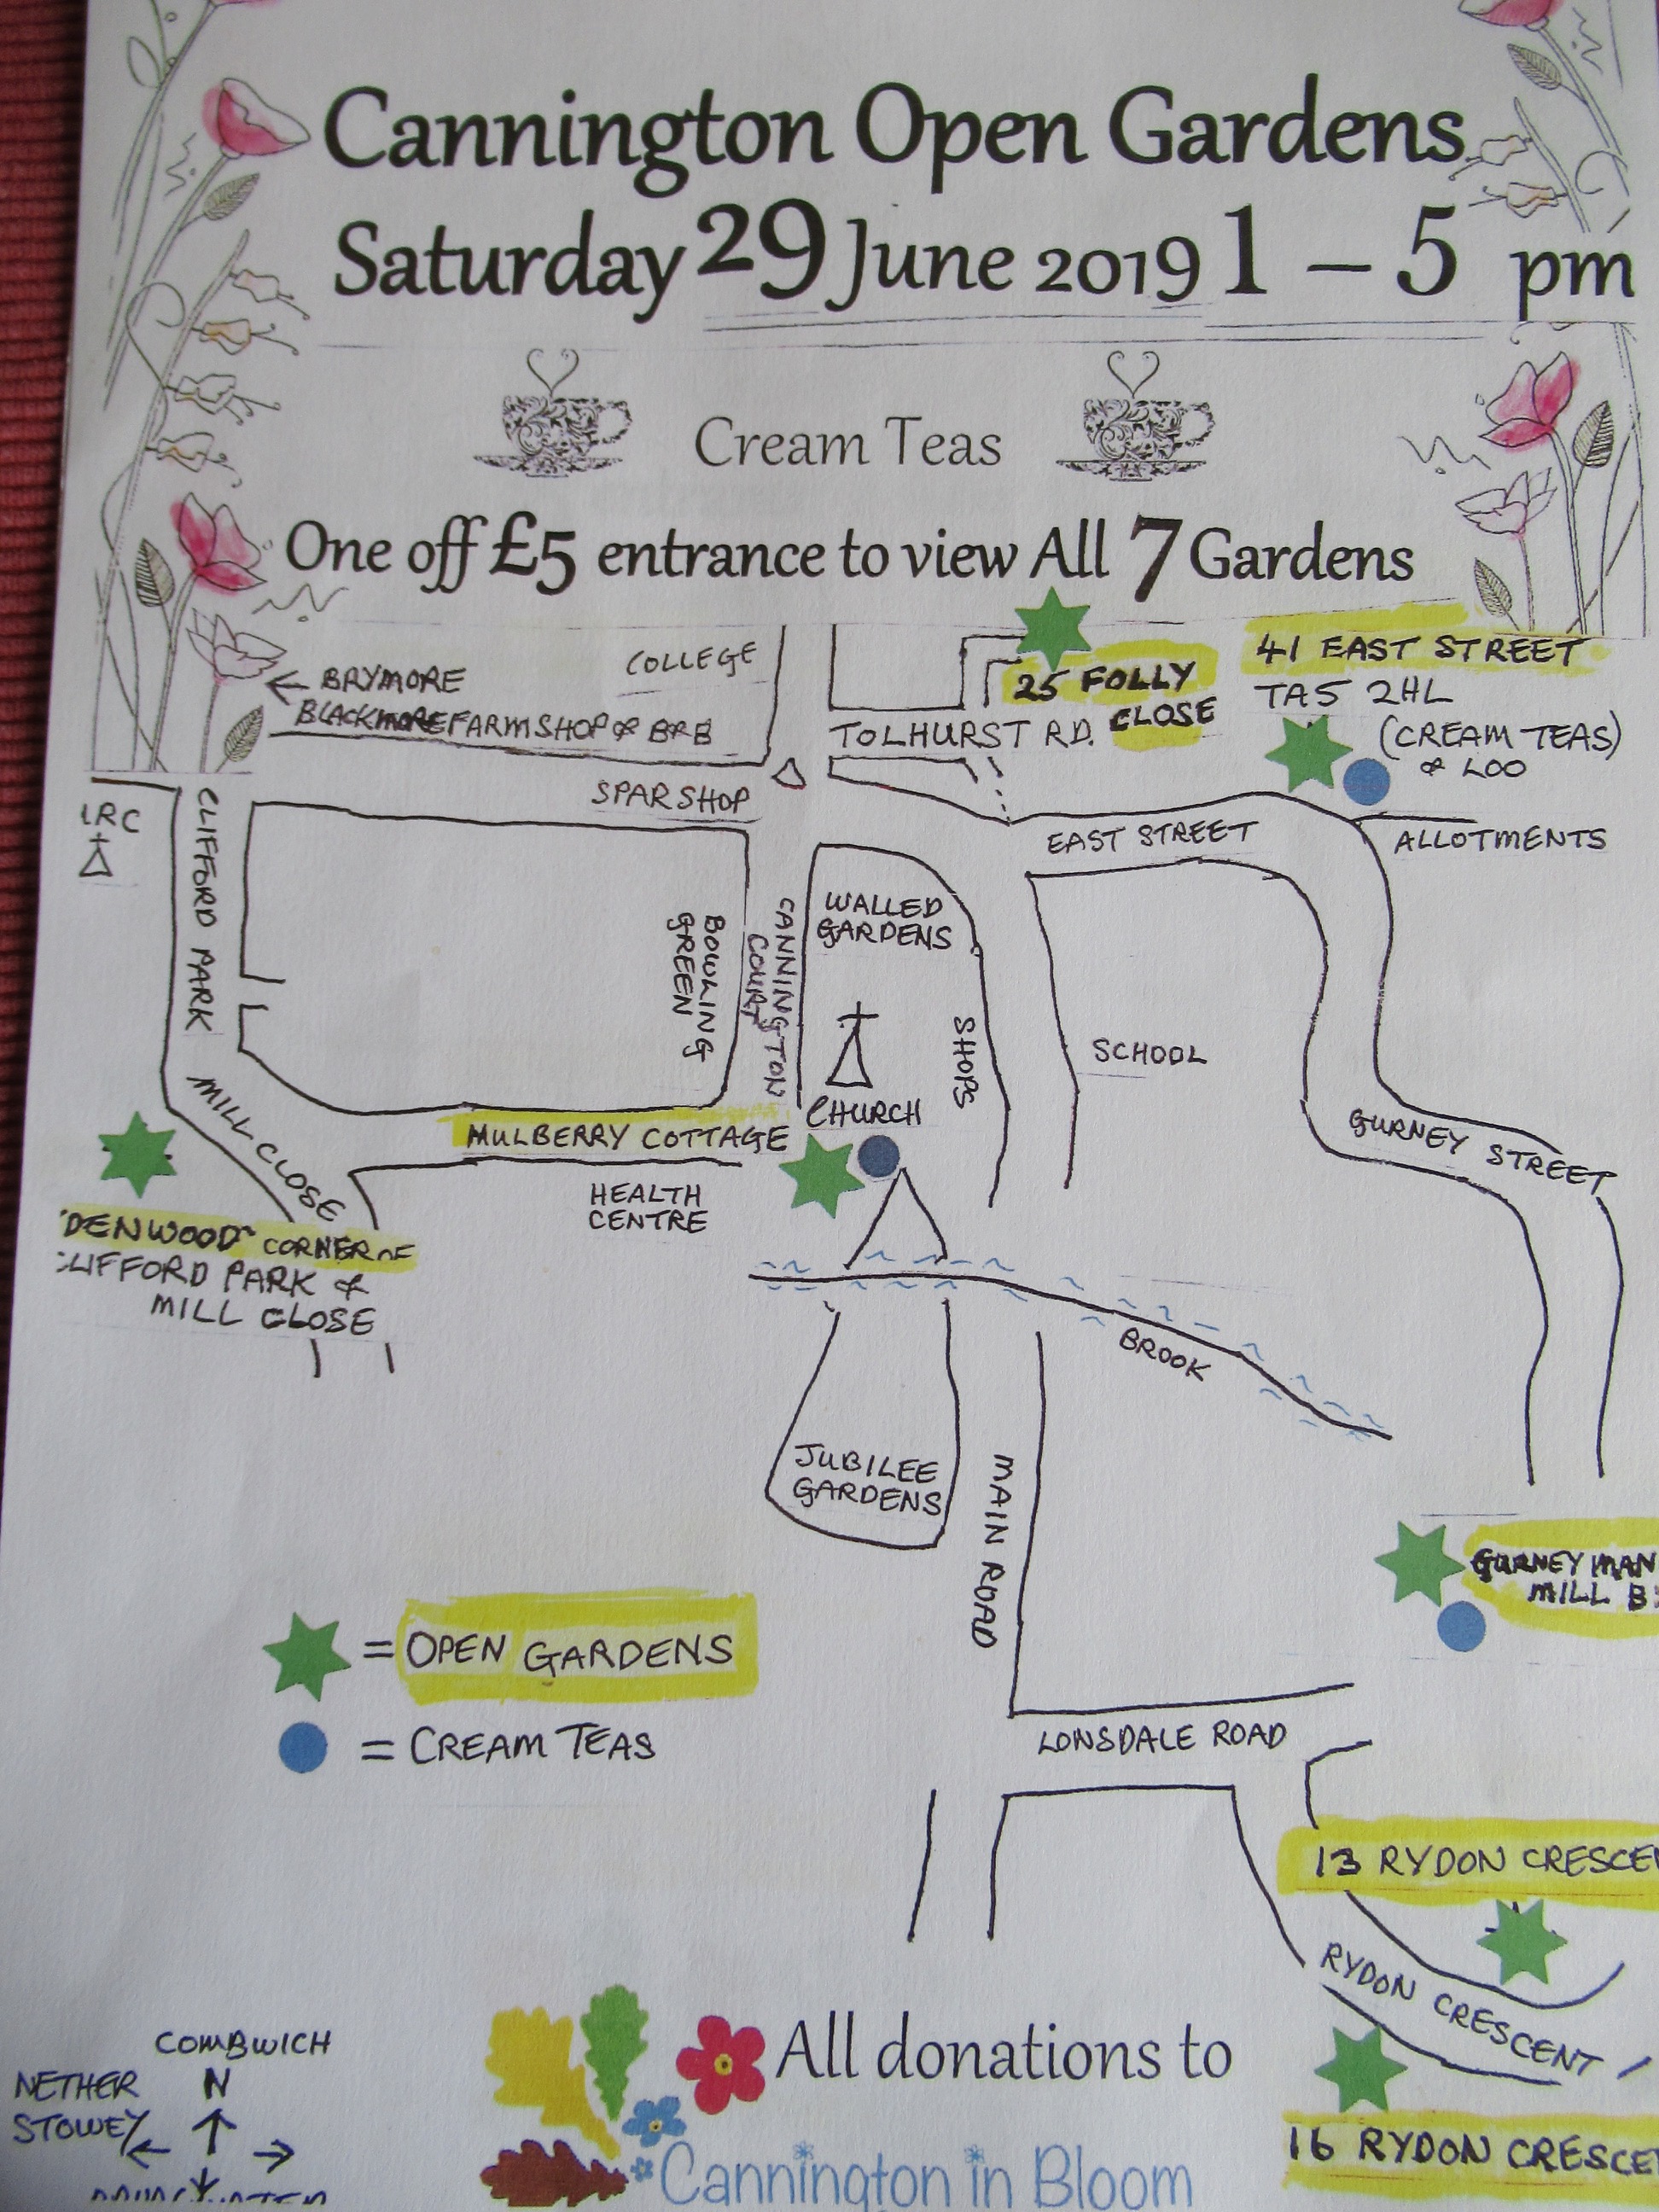 Cannington Open Gardens
Saturday 29 June 2019 1 – 5 pm
Cream Teas
One off £5 entrance to view All 7 Gardens
← BRYMORE
BLACKMORE FARM SHOP & B&B
COLLEGE
25 FOLLY
CLOSE
TOLHURST RD.
41 EAST STREET
TA5 2HL
(CREAM TEAS)
& LOO
SPAR SHOP
EAST STREET
ALLOTMENTS
RC
CLIFFORD PARK
BOWLING
GREEN
CANNINGTON
COURT
WALLED
GARDENS
SHOPS
SCHOOL
CHURCH
GURNEY STREET
MILL CLOSE
MULBERRY COTTAGE
HEALTH
CENTRE
DENWOOD" CORNER OF
LIFFORD PARK &
MILL CLOSE
BROOK
JUBILEE
GARDENS
MAIN ROAD
GURNEY MAN
MILL
= OPEN GARDENS
= CREAM TEAS
LONSDALE ROAD
13 RYDON CRESCE
RYDON CRESCENT
16 RYDON CRESCE
COMBWICH
NETHER
STOWEY
N
All donations to
Cannington in Bloom